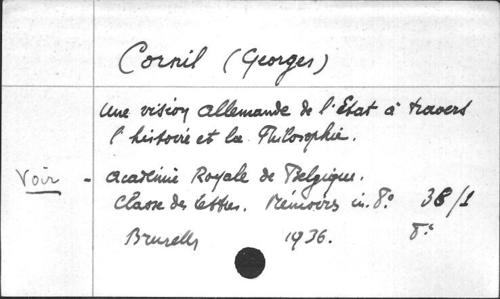 Cornil (Georges)
Une vision allemande de l'Etat à travers
l'histoire et la Philosophie.
Voir - Académie Royale de Belgique.
Classe des lettres. Mémoires in-8° 38/1
Bruxelles 1936. 8°